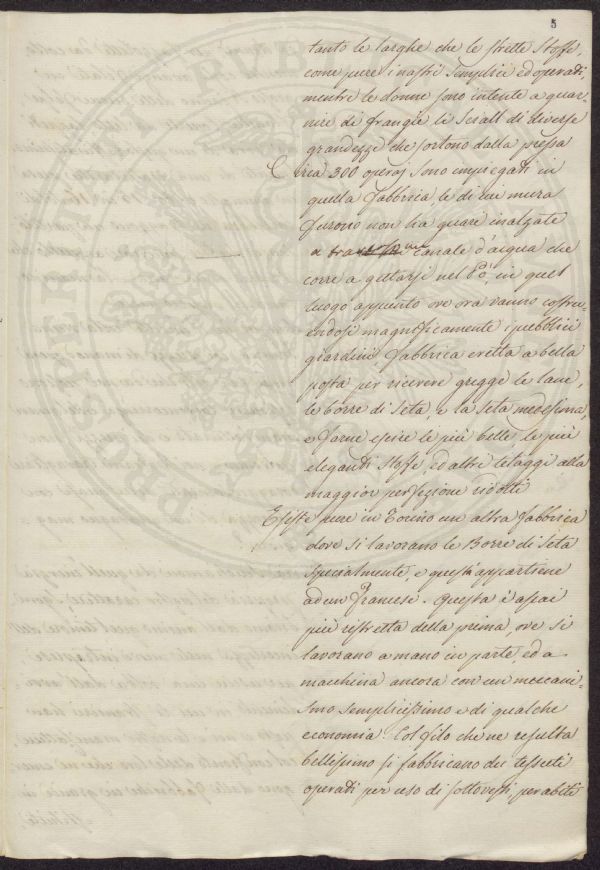 5
tanto le larghe che le strette stoffe,
come pure i nastri semplici ed operati,
mentre le donne sono intente a guar-
nire di frangie le Sciall di diverse
grandezze che sortono dalla pressa
Circa 300 operaj sono impiegati in
questa fabbrica le di cui mura
furono non ha guari inalzate
a canale d'acqua che
corre a gettarsi nel Pò, in quel
luogo appunto ove ora vanno costru-
endosi magnificamente i pubblici
giardini. Fabbrica eretta a bella
posta per ricevere gregge le lane,
le borre di seta, e la seta medesima,
e farne escire le più belle le più
eleganti stoffe, ed altri telaggi alla
maggior perfezione ridotti
Esiste pure in Torino un altra fabbrica
dove si lavorano le Borre di seta
specialmente, e quest'appartiene
ad un francese. Questa è assai
più ristretta della prima, ove si
lavorano a mano in parte, ed a
macchina ancora con un meccani-
smo semplicissimo e di qualche
economia. Col filo che ne resulta
bellissimo si fabbricano dei tessuti
operati per uso di sottovesti, per abiti
PROSPERITATI PUBLICAE